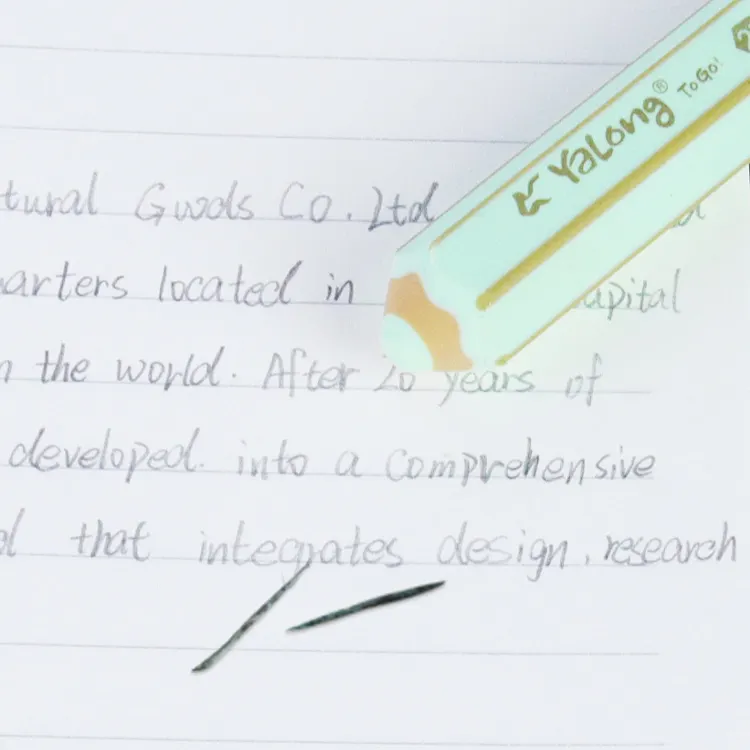 YaLong® ToGo!
tural Goods Co. Ltd
arters located in apital
the world. After 20 years of
developed. into a Comprehensive
that integrates design, research